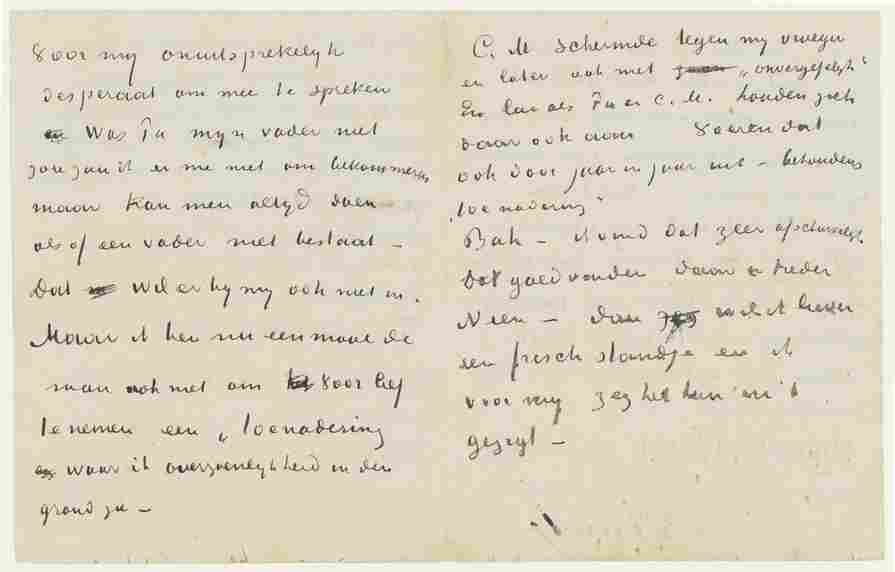 voor my onuitsprekelyk
desperaat om mee te spreken
Was Pa myn vader niet
zou ik er me niet om bekommeren
maar kan men altyd doen
als of een vader niet bestaat –
Dat wil er by my ook niet in.
Maar ik ben nu eenmaal de
man ook niet om voor lief
te nemen een „toenadering
waar ik onverzoenlykheid in den
grond zie –
C. M schermde tegen my vroeger
en later ook met „onvergefelyk“
En Pa en C. M. houden zich
daar ook aan dat
ook door jaar in jaar uit – behoudens
„toenadering“
Bah – ik vind dat zeer afschuwelyk
Dat goedvinden daar
Neen – dan wil ik liever
een frisch standje en ik
voor my zeg het hun en 't
gezegd –